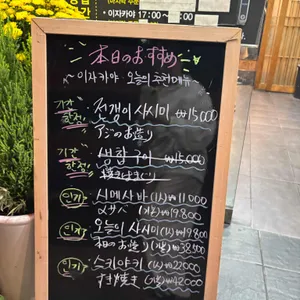 • 이자카야 17:00 ~
本日のおすすめ
이자카야 오늘의 추천메뉴
기간한정 전갱이 사시미 ₩15,000
アジのお造り
기간한정 생합 구이 ₩15,000
焼きはまぐり
인기 시메사바 (小) ₩11,000
〆サバ (大) ₩19,800
인기 오늘의 사시미 (小) ₩19,800
本日のお造り (大) ₩38,500
인기 스키야키 (小) ₩22,000
すき焼き (大) ₩42,000